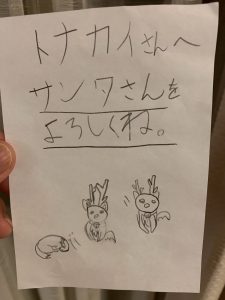 トナカイさんへ
サンタさんを
よろしくね。